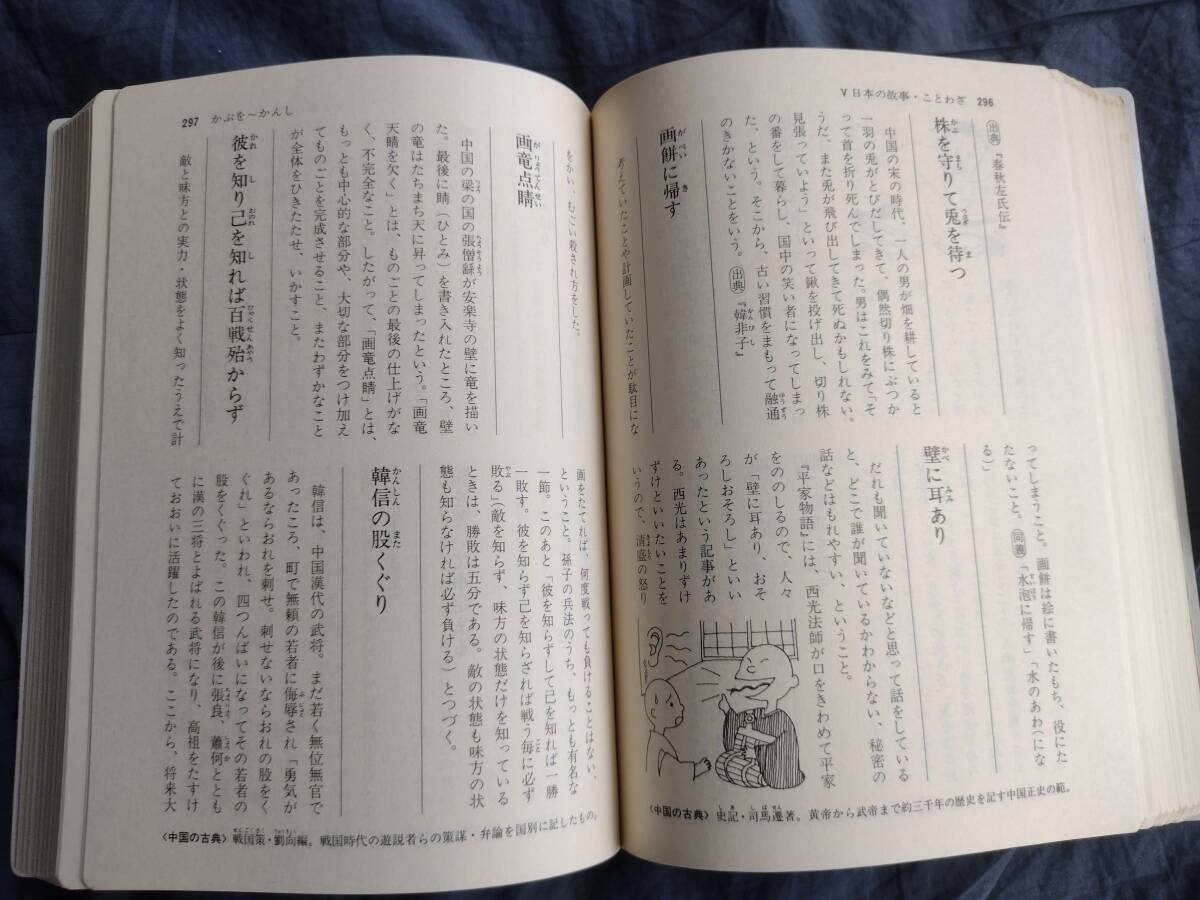 V 日本の故事・ことわざ 296
出典『春秋左氏伝』
かぶ まも うさぎ ま
株を守りて兎を待つ
中国の宋の時代、一人の男が畑を耕していると
一羽の兎がとびだしてきて、偶然切り株にぶつか
って首を折り死んでしまった。男はこれをみて「そ
うだ、また兎が飛び出してきて死ぬかもしれない。
見張っていよう」といって鍬を投げ出し、切り株
の番をして暮らし、国中の笑い者になってしまっ
た、という。そこから、古い習慣をまもって融通
のきかないことをいう。出典『韓非子』
がべい き
画餅に帰す
考えていたことや計画していたことが駄目にな
ってしまうこと。画餅は絵に書いたもち、役にた
たないこと。同義「水泡に帰す」「水のあわ(にな
る)」
かべ みみ
壁に耳あり
だれも聞いていないなどと思って話をしている
と、どこで誰が聞いているかわからない、秘密の
話などはもれやすい、ということ。
『平家物語』には、西光法師が口をきわめて平家
をののしるので、人々
が「壁に耳あり、おそ
ろしおそろし」といい
あったという記事があ
る。西光はあまりずけ
ずけといいたいことを
いうので、清盛の怒り
〈中国の古典〉史記・司馬遷著。黄帝から武帝まで約三千年の歴史を記す中国正史の範。
297 かぶを〜かんし
をかい、むごい殺され方をした。
がりょうてんせい
画竜点睛
中国の梁の国の張僧繇が安楽寺の壁に竜を描い
た。最後に睛(ひとみ)を書き入れたところ、壁
の竜はたちまち天に昇ってしまったという。「画竜
天睛を欠く」とは、ものごとの最後の仕上げがな
く、不完全なこと。したがって、「画竜点睛」とは、
もっとも中心的な部分や、大切な部分をつけ加え
てものごとを完成させること、またわずかなこと
が全体をひきたたせ、いかすこと。
かれ し おのれ し ひゃくせんあやう
彼を知り己を知れば百戦殆からず
敵と味方との実力・状態をよく知ったうえで計
画をたてれば、何度戦っても負けることはない、
ということ。孫子の兵法のうち、もっとも有名な
一節。このあと「彼を知らずして己を知れば一勝
一敗す。彼を知らず己を知らざれば戦う毎に必ず
敗る」(敵を知らず、味方の状態だけを知っている
ときは、勝敗は五分である。敵の状態も味方の状
態も知らなければ必ず負ける)とつづく。
かんしん また
韓信の股くぐり
韓信は、中国漢代の武将。まだ若く無位無官で
あったころ、町で無頼の若者に侮辱され「勇気が
あるならおれを刺せ。刺せないならおれの股をく
ぐれ」といわれ、四つんばいになってその若者の
股をくぐった。この韓信が後に張良、蕭何ととも
に漢の三将とよばれる武将になり、高祖をたすけ
ておおいに活躍したのである。ここから、将来大
〈中国の古典〉戦国策・劉向編。戦国時代の遊説者らの策謀・弁論を国別に記したもの。